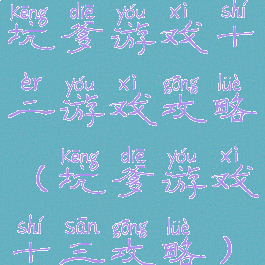 kēng diē yóu xì shí
坑爹游戏十
èr yóu xì gōng lüè
二游戏攻略
kēng diē yóu xì
（坑爹游戏
shí sān gōng lüè
十三攻略）